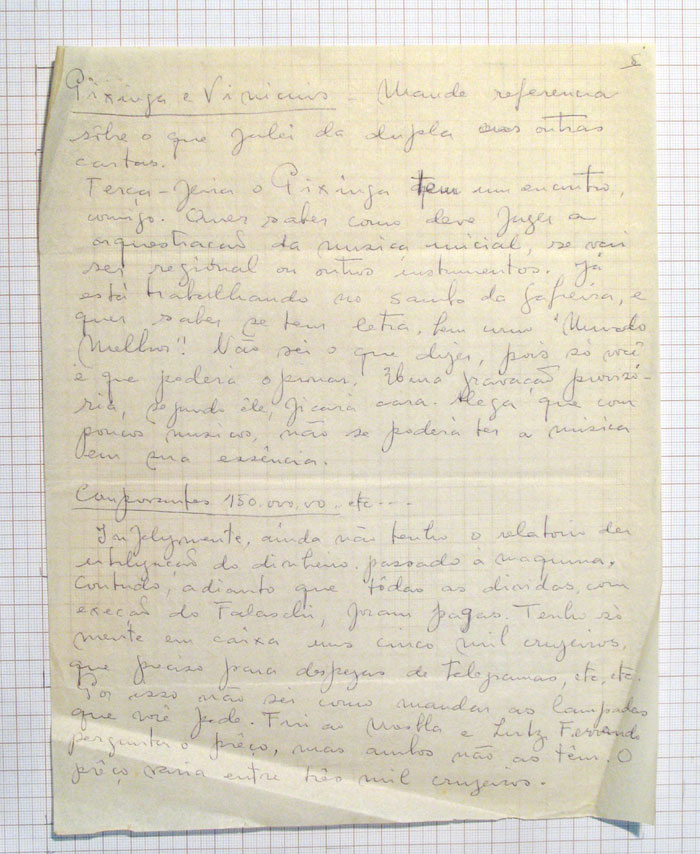 5
Pixinga e Vinicius - Mande referencia
sôbre o que falei da dupla nas outras
cartas.
Terça-feira o Pixinga tem um encontro,
comigo. Quer saber como deve fazer a
orquestração da musica inicial, se vai
ser regional ou outros instrumentos. Já
está trabalhando no samba da gafieira, e
quer saber se tem letra, bem como "Mundo
Melhor"! Não sei o que dizer, pois só você
é que poderá opinar. Uma gravação provisó-
ria, segundo êle, ficará cara. Alega que com
poucos musicos, não se poderá ter a musica
em sua essência.
150.000,00 etc....
Infelizmente, ainda não tenho o relatorio da
utilização do dinheiro passado à maquina.
Contudo, adianto que tôdas as dividas, com
exeção do Falaschi, foram pagas. Tenho sò
mente em caixa uns cinco mil cruzeiros,
que preciso para despezas de telegramas, etc, etc.
Por isso não sei como mandar as lampadas
que você pede. Fui a Mesbla e Lutz Ferrando
perguntar o prêço, mas ambos não as têm. O
prêço varia entre três mil cruzeiros.